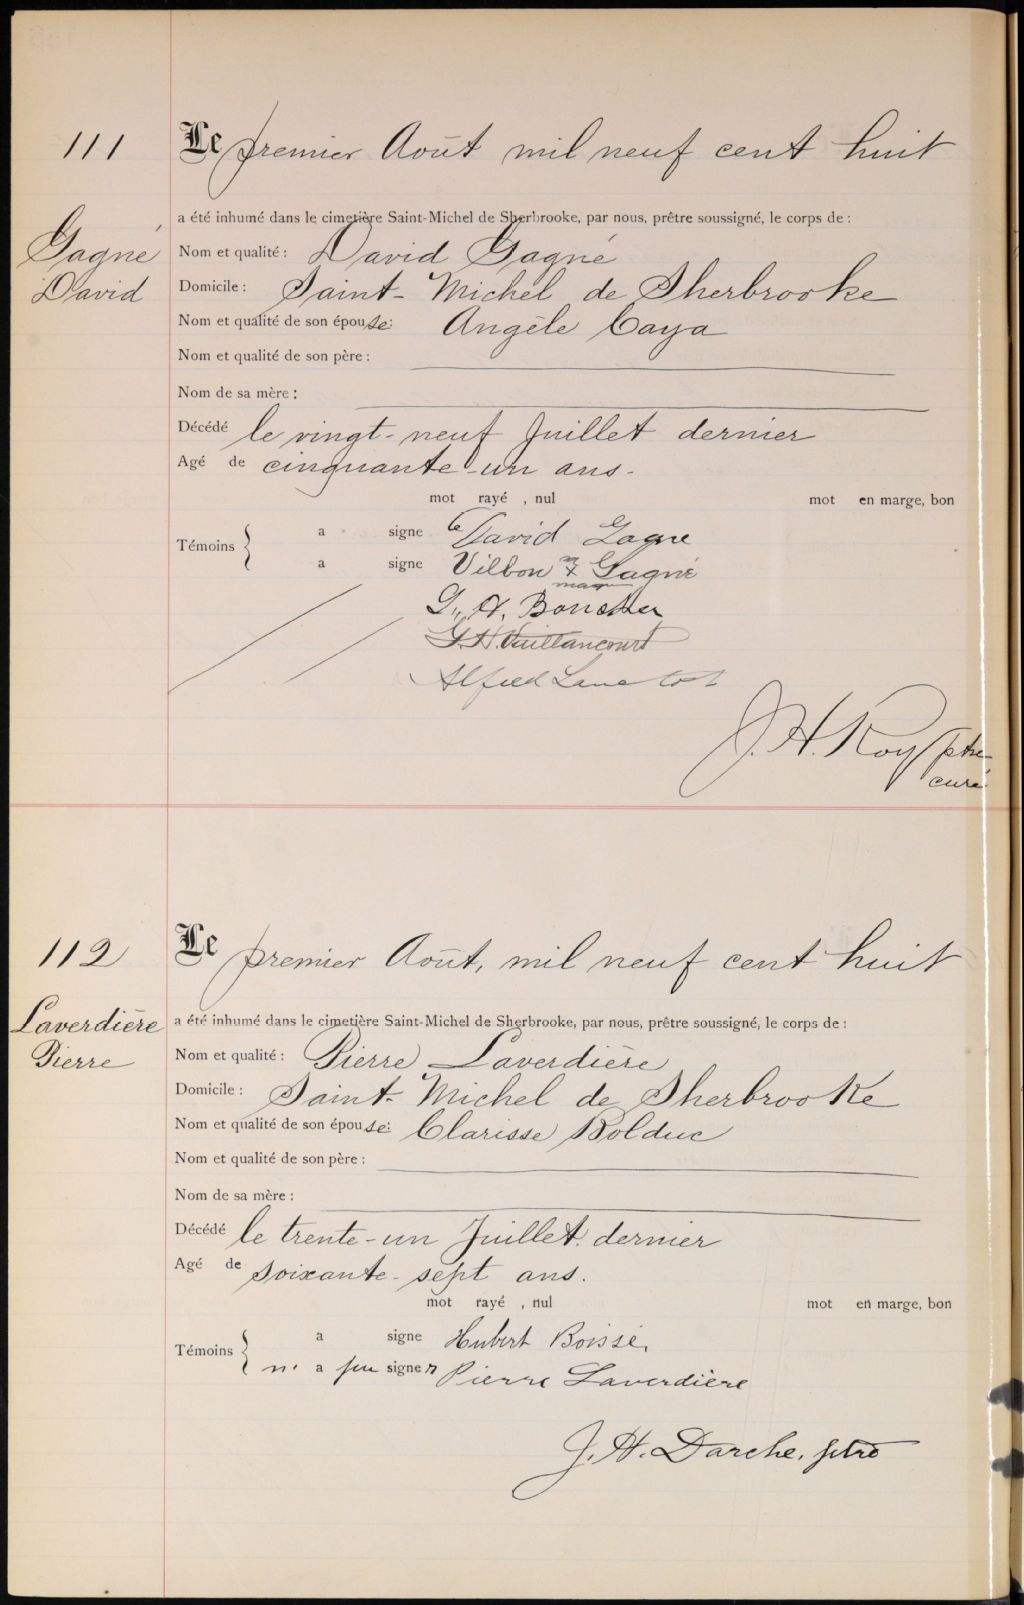 111
Le premier Août mil neuf cent huit
a été inhumé dans le cimetière Saint-Michel de Sherbrooke, par nous, prêtre soussigné, le corps de :
Gagné
David
Nom et qualité : David Gagné
Domicile : Saint-Michel de Sherbrooke
Nom et qualité de son épouse: Angèle Caya
Nom et qualité de son père :
Nom de sa mère :
Décédé le vingt-neuf Juillet dernier
Agé de cinquante-un ans.
mot rayé , nul mot en marge, bon
Témoins
a signe David Gagne
a signe Vilbon x Gagné
G. A. Boucher
G. H. Vaillancourt
Alfred
J. H. Roy ptre
curé
112
Le premier Août, mil neuf cent huit
a été inhumé dans le cimetière Saint-Michel de Sherbrooke, par nous, prêtre soussigné, le corps de :
Laverdière
Pierre
Nom et qualité : Pierre Laverdière
Domicile : Saint-Michel de Sherbrooke
Nom et qualité de son épouse: Clarisse Bolduc
Nom et qualité de son père :
Nom de sa mère :
Décédé le trente-un Juillet dernier
Agé de soixante-sept ans.
mot rayé , nul mot en marge, bon
Témoins
a signe Hubert Boissé.
n' a pu signer Pierre Laverdière
J. H. Darche, ptre